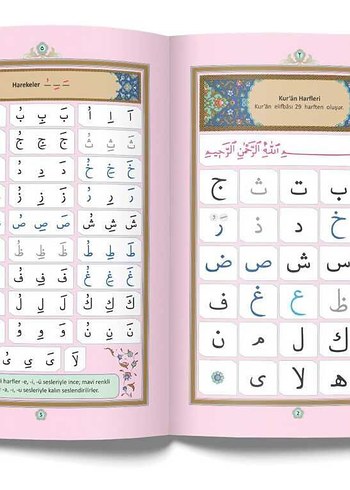 Harekeler
اَ اِ اُ بَ بِ بُ
ثَ ثِ ثُ جَ جِ جُ
خَ خِ خُ دَ دِ دُ
رَ رِ رُ زَ زِ زُ
شَ شِ شُ صَ صِ صُ
طَ طِ طُ ظَ ظِ ظُ
غَ غِ غُ فَ فِ فُ
كَ كِ كُ لَ لِ لُ
نَ نِ نُ وَ وِ وُ
لَا ىَ ىِ ىُ
harfler -e, -i, -ü sesleriyle ince; mavi renkli
-a, -ı, -u sesleriyle kalın seslendirilirler.
3
٢
Kur'ân Harfleri
Kur'ân elifbâsı 29 harften oluşur.
اللهِ الرَّحْمٰنِ الرَّحِيمِ
ب ت ث ج
خ د ذ ر
س ش ص ض
ظ ع غ ف
ك ل م ن
ه لا ى
2